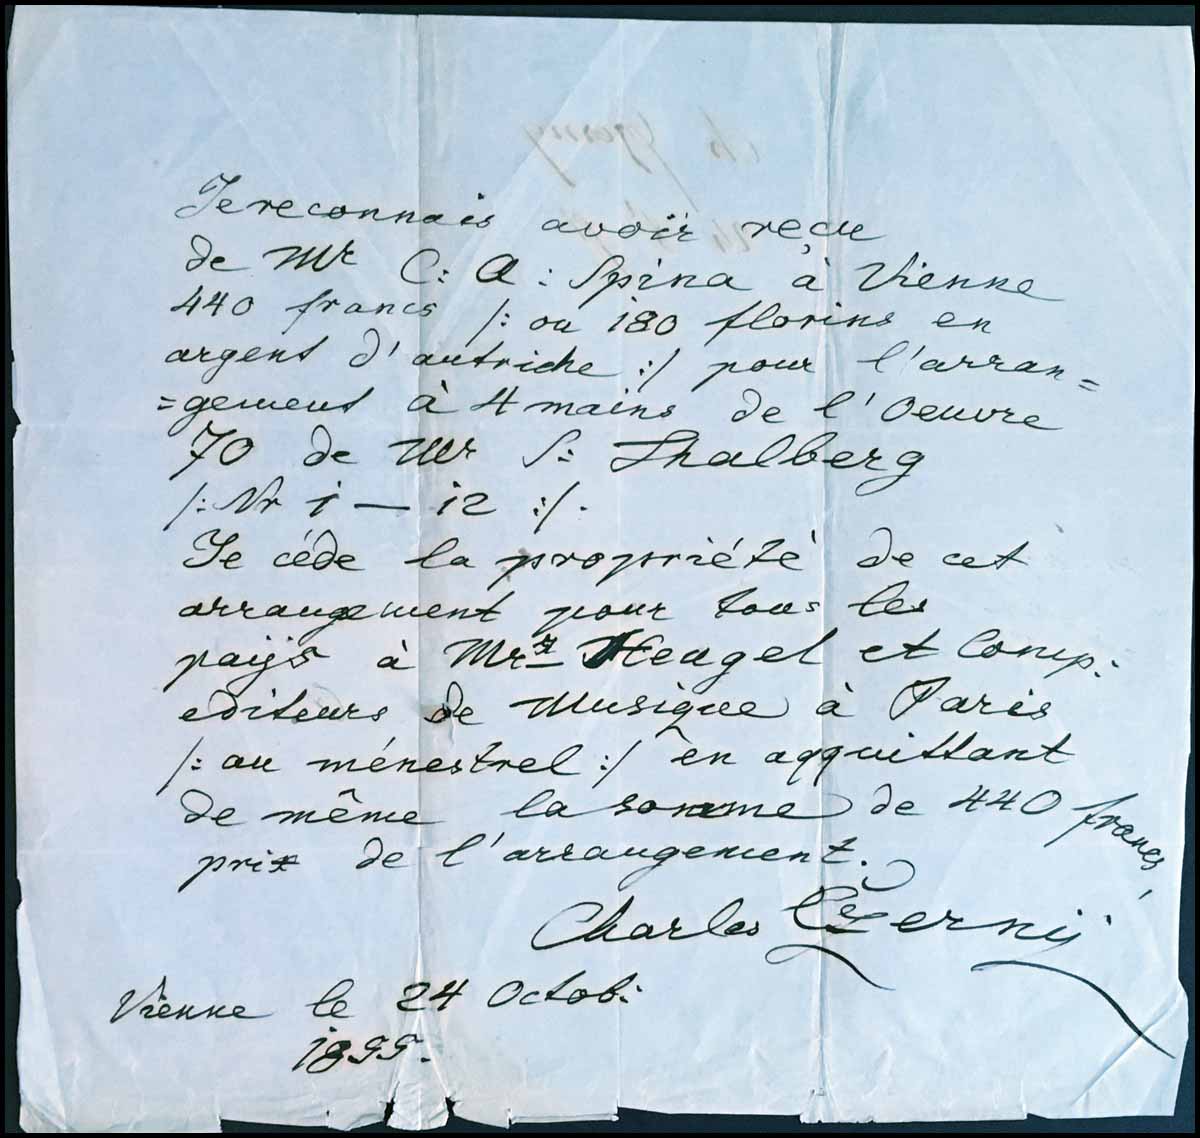 Je reconnais avoir reçu
de Mr C: A: Spina à Vienne
440 francs /: ou 180 florins en
argent d'autriche :/ pour l'arran=
=gement à 4 mains de l'Oeuvre
70 de Mr S: Thalberg
/: Nr 1 — 12 :/.
Je céde la propriété de cet
arrangement pour tous les
paÿs à Mrs Heugel et Comp:
editeurs de Musique à Paris
/: au ménestrel :/ en aqquittant
de même la somme de 440 francs,
prix de l'arrangement.
Charles Czernÿ
Vienne le 24 Octob:
1855.